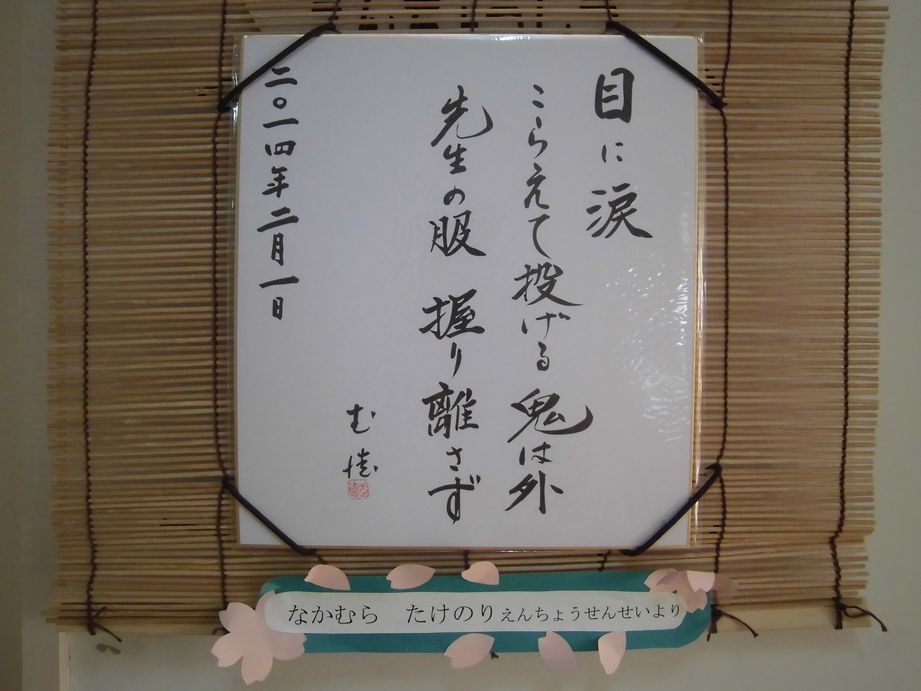 目に涙
こらえて投げる 鬼は外
先生の服 握り離さず
む
二〇一四年二月一日
なかむら たけのりえんちょうせんせいより